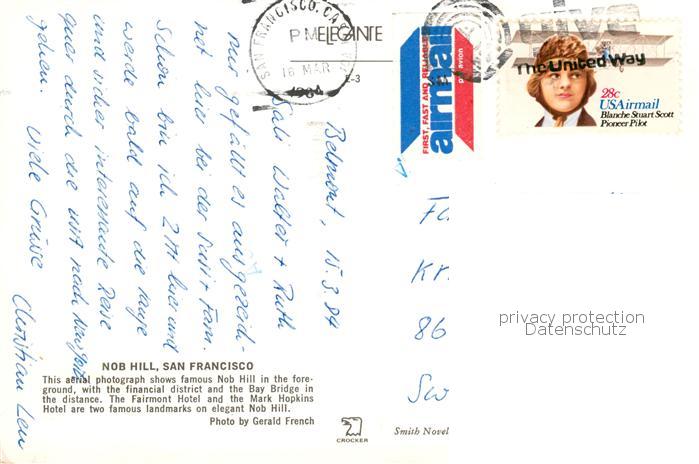 SAN FRANCISCO, CA
PM
16 MAR
1984
ELEGANTE
E-3
FIRST, FAST AND RELIABLE
airmail
par avion
The United Way
28c
USAirmail
Blanche Stuart Scott
Pioneer Pilot
Belmont, 15.3.84
Sali Walter + Ruth
Mir gefällt es ausgezeich-
net hier bei der Susi + Fam.
Schon bin ich 2 M hier und
werde bald auf die lange
und sicher interessante Reise
quer durch die nach New York
gehen. Viele Grüsse
Christian Leu
Fa
Kr
86
Sw
privacy protection
Datenschutz
NOB HILL, SAN FRANCISCO
This aerial photograph shows famous Nob Hill in the fore-
ground, with the financial district and the Bay Bridge in
the distance. The Fairmont Hotel and the Mark Hopkins
Hotel are two famous landmarks on elegant Nob Hill.
Photo by Gerald French
CROCKER
Smith Novel